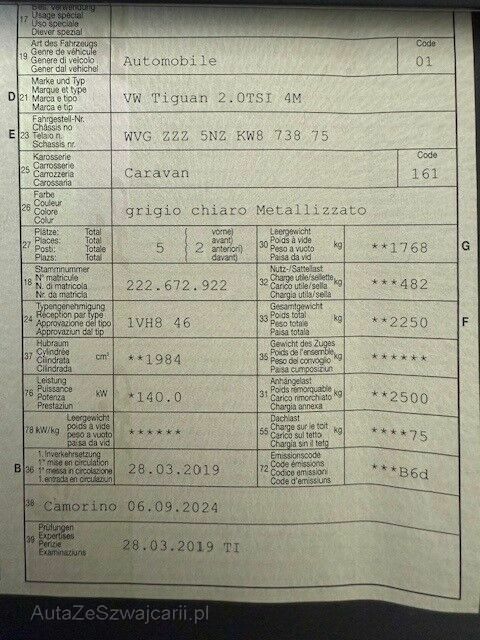 17 Bes. Verwendung
Usage spécial
Uso speciale
Diever spezial
19 Art des Fahrzeugs
Genre de véhicule
Genere di veicolo
Gener dal vehichel
Automobile
Code
01
D 21 Marke und Typ
Marque et type
Marca e tipo
Marca e tip
VW Tiguan 2.0TSI 4M
E 23 Fahrgestell-Nr.
Châssis no
Telaio n.
Schassis nr.
WVG ZZZ 5NZ KW8 738 75
25 Karosserie
Carrosserie
Carrozzeria
Carossaria
Caravan
Code
161
26 Farbe
Couleur
Colore
Colur
grigio chiaro Metallizzato
27 Plätze: Total
Places: Total
Posti: Totale
Plazs: Total
5
vorne)
avant)
avanti)
davant)
2
30 Leergewicht
Poids à vide
Peso a vuoto
Paisa da vid
kg
**1768
G
18 Stammnummer
N° matricule
N. di matricola
Nr. da matricla
222.672.922
32 Nutz-/Sattellast
Charge utile/sellette
Carico utile/sella
Chargia utila/sella
kg
***482
24 Typengenehmigung
Réception par type
Approvazione del tipo
Approvaziun dal tip
1VH8 46
33 Gesamtgewicht
Poids total
Peso totale
Paisa totala
kg
**2250
F
37 Hubraum
Cylindrée
Cilindrata
Cilindrada
cm³
**1984
35 Gewicht des Zuges
Poids de l'ensemble
Peso del convoglio
Paisa cumposiziun
kg
******
76 Leistung
Puissance
Potenza
Prestaziun
kW
*140.0
31 Anhängelast
Poids remorquable
Carico rimorchiato
Chargia annexa
kg
**2500
78 kW/kg
Leergewicht
poids à vide
peso a vuoto
paisa da vid
******
55 Dachlast
Charge sur le toit
Carico sul tetto
Chargia sin il tetg
kg
****75
B 36 1.Inverkehrsetzung
1re mise en circulation
1a messa in circolazione
1.entrada en circulaziun
28.03.2019
72 Emissionscode
Code émissions
Codice emissioni
Code d'emissiuns
***B6d
38 Camorino 06.09.2024
39 Prüfungen
Expertises
Perizie
Examinaziuns
28.03.2019 TI
AutaZeSzwajcarii.pl